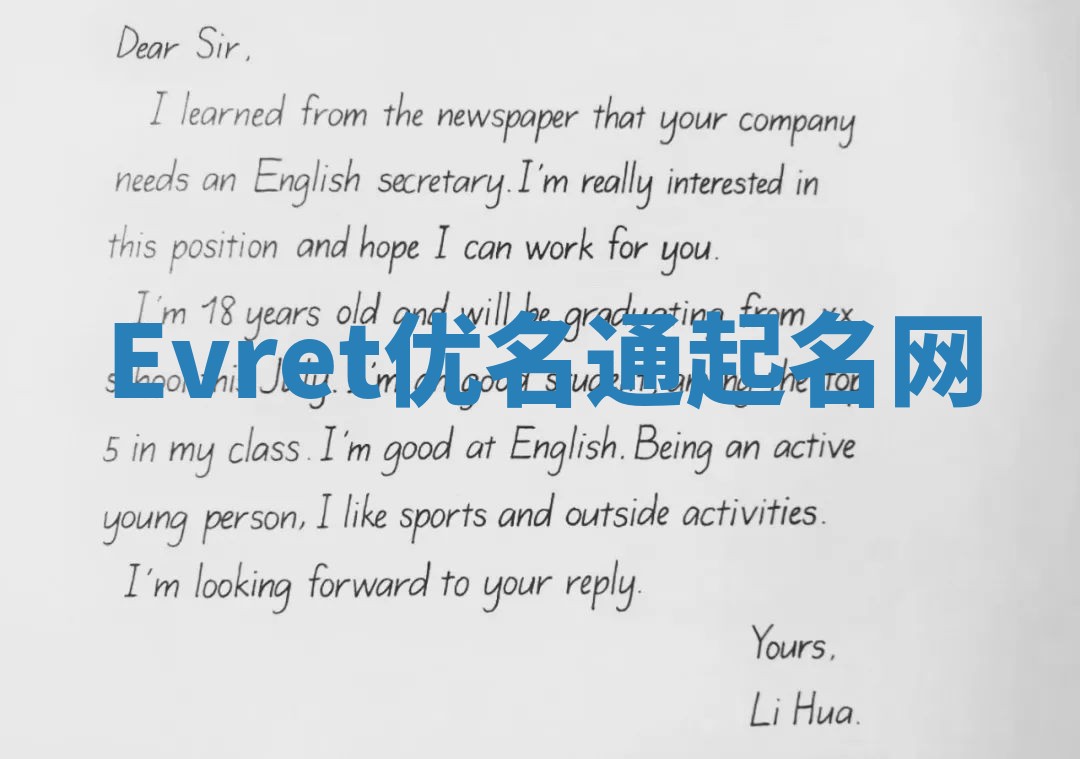 Dear Sir,
I learned from the newspaper that your company
needs an English secretary. I'm really interested in
this position and hope I can work for you.
I'm 18 years old and will be graduating from xx
school this July. I'm an good student, among the top
Evret优名通起名网
5 in my class. I'm good at English. Being an active
young person, I like sports and outside activities.
I'm looking forward to your reply.
Yours,
Li Hua.